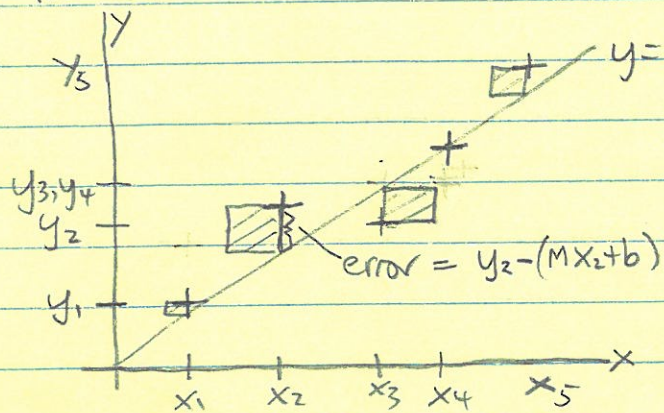 Y
Y5
y=
y3,y4
y2
error = y2-(Mx2+b)
y1
X
x1 x2 x3 x4 x5